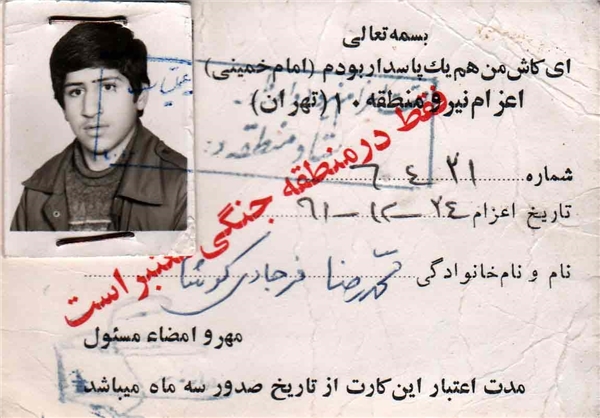 بسمه تعالی
ای کاش من هم یك پاسدار بودم (امام خمینی)
اعزام نیرو منطقه ۱۰ (تهران)
شماره ۶۴۲۱
تاریخ اعزام ۲۴-۱۲-۶۱
نام و نام خانوادگی محمدرضا فرجادی کوشا
مهر و امضاء مسئول
مدت اعتبار این کارت از تاریخ صدور سه ماه میباشد
فقط در منطقه جنگی معتبر است